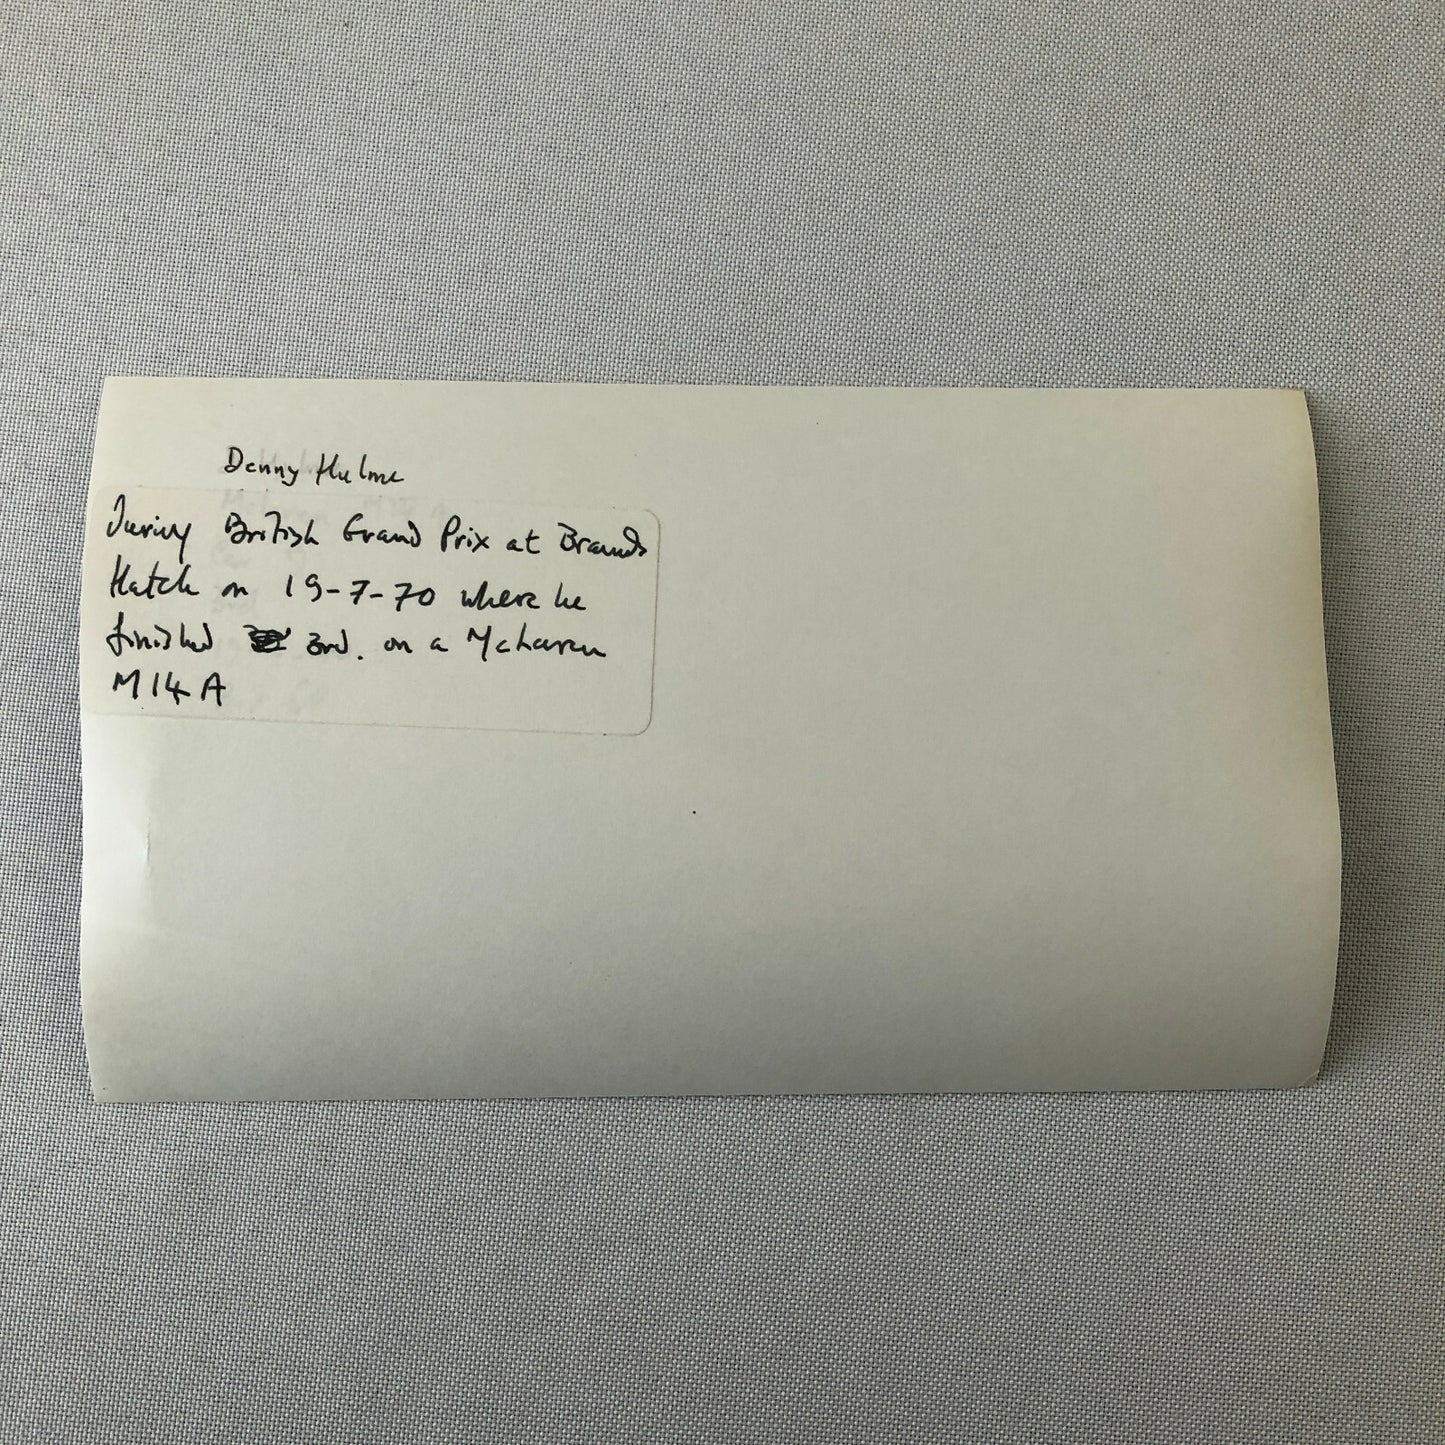 Denny Hulme
During British Grand Prix at Brands
Hatch on 19-7-70 where he
finished 3rd. on a McLaren
M14A